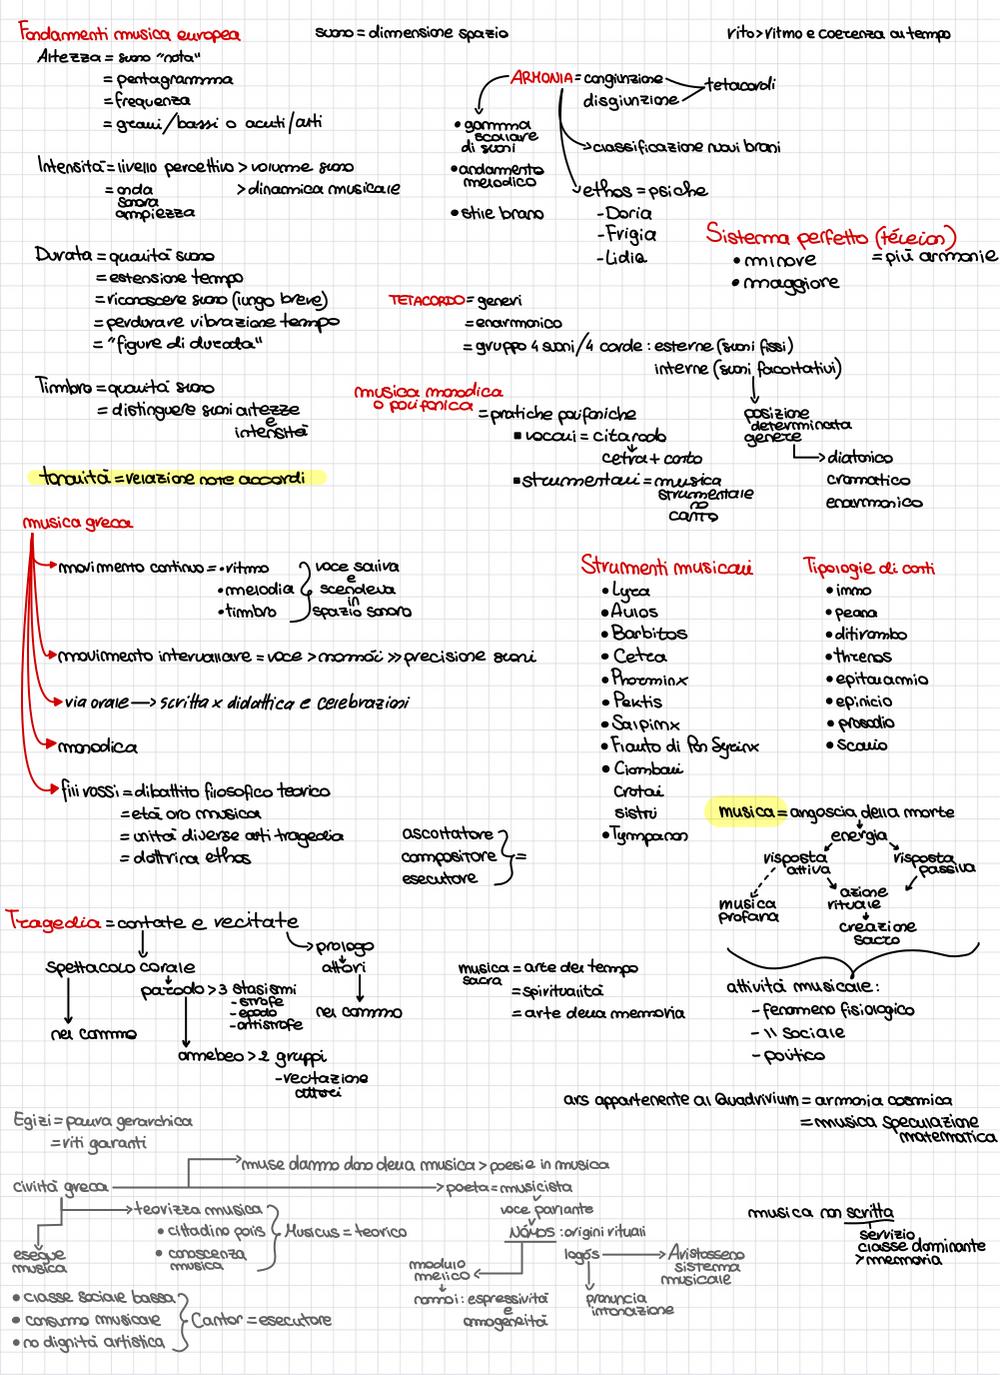 Fondamenti musica europea
suono = dimensione spazio
rito > ritmo e coerenza al tempo
Altezza = suono "nota"
= pentagramma
= frequenza
= gravi/bassi o acuti/alti
Intensità = livello percettivo > volume suono
= onda sonora ampiezza
> dinamica musicale
Durata = qualità suono
= estensione tempo
= riconoscere suono (lungo breve)
= perdurare vibrazione tempo
= "figure di durata"
Timbro = qualità suono
= distinguere suoni altezze
e
intensità
tonalità = relazione note accordi
ARMONIA = congiunzione
disgiunzione
tetracordi
• gamma
scalare
di suoni
• andamento
melodico
• stile brano
classificazione nuovi brani
ethos = psiche
- Doria
- Frigia
- Lidia
Sistema perfetto (téleion)
• minore
= più armonie
• maggiore
TETACORDO = generi
= enarmonico
= gruppo 4 suoni/4 corde : esterne (suoni fissi)
interne (suoni facoltativi)
posizione
determinata
genere
diatonico
cromatico
enarmonico
musica monodica
o polifonica
= pratiche polifoniche
▪ vocali = citarodo
cetra + canto
▪ strumentali = musica
strumentale
no
canto
musica greca
movimento continuo = • ritmo
• melodia
• timbro
voce saliva
e
scendeva
in
spazio sonoro
movimento intervallare = voce > nomói >> precisione suoni
via orale → scritta x didattica e celebrazioni
monodica
fili rossi = dibattito filosofico teorico
= età oro musica
= unità diverse arti tragedia
= dottrina ethos
ascoltatore
compositore
=
esecutore
Strumenti musicali
• Lyra
• Aulos
• Barbitos
• Cetra
• Phorminx
• Pektis
• Salpinx
• Flauto di Pan Syrinx
• Ciambali
Crotali
sistri
• Tympanon
Tipologie di canti
• inno
• peana
• ditirambo
• threnos
• epitalamio
• epinicio
• prosodio
• scolio
musica = angoscia della morte
energia
risposta
attiva
risposta
passiva
musica
profana
azione
rituale
creazione
sacro
attività musicale :
- fenomeno fisiologico
- " sociale
- politico
Tragedia = cantate e recitate
prologo
attori
nel commo
spettacolo corale
nel commo
parodo > 3 stasismi
- strofe
- epodo
- antistrofe
amebeo > 2 gruppi
- recitazione
attori
musica
sacra
= arte del tempo
= spiritualità
= arte della memoria
ars appartenente al Quadrivium = armonia cosmica
= musica speculazione
matematica
Egizi = paura gerarchica
= riti garanti
civiltà greca
muse danno dono della musica > poesie in musica
poeta = musicista
voce parlante
Nómos : origini rituali
modulo
melico
nomoi : espressività
e
omogeneità
logós
Aristosseno
sistema
musicale
pronuncia
intonazione
teorizza musica
• cittadino polis
• conoscenza
musica
Musicus = teorico
esegue
musica
• classe sociale bassa
• consumo musicale
• no dignità artistica
Cantor = esecutore
musica non scritta
servizio
classe dominante
> memoria